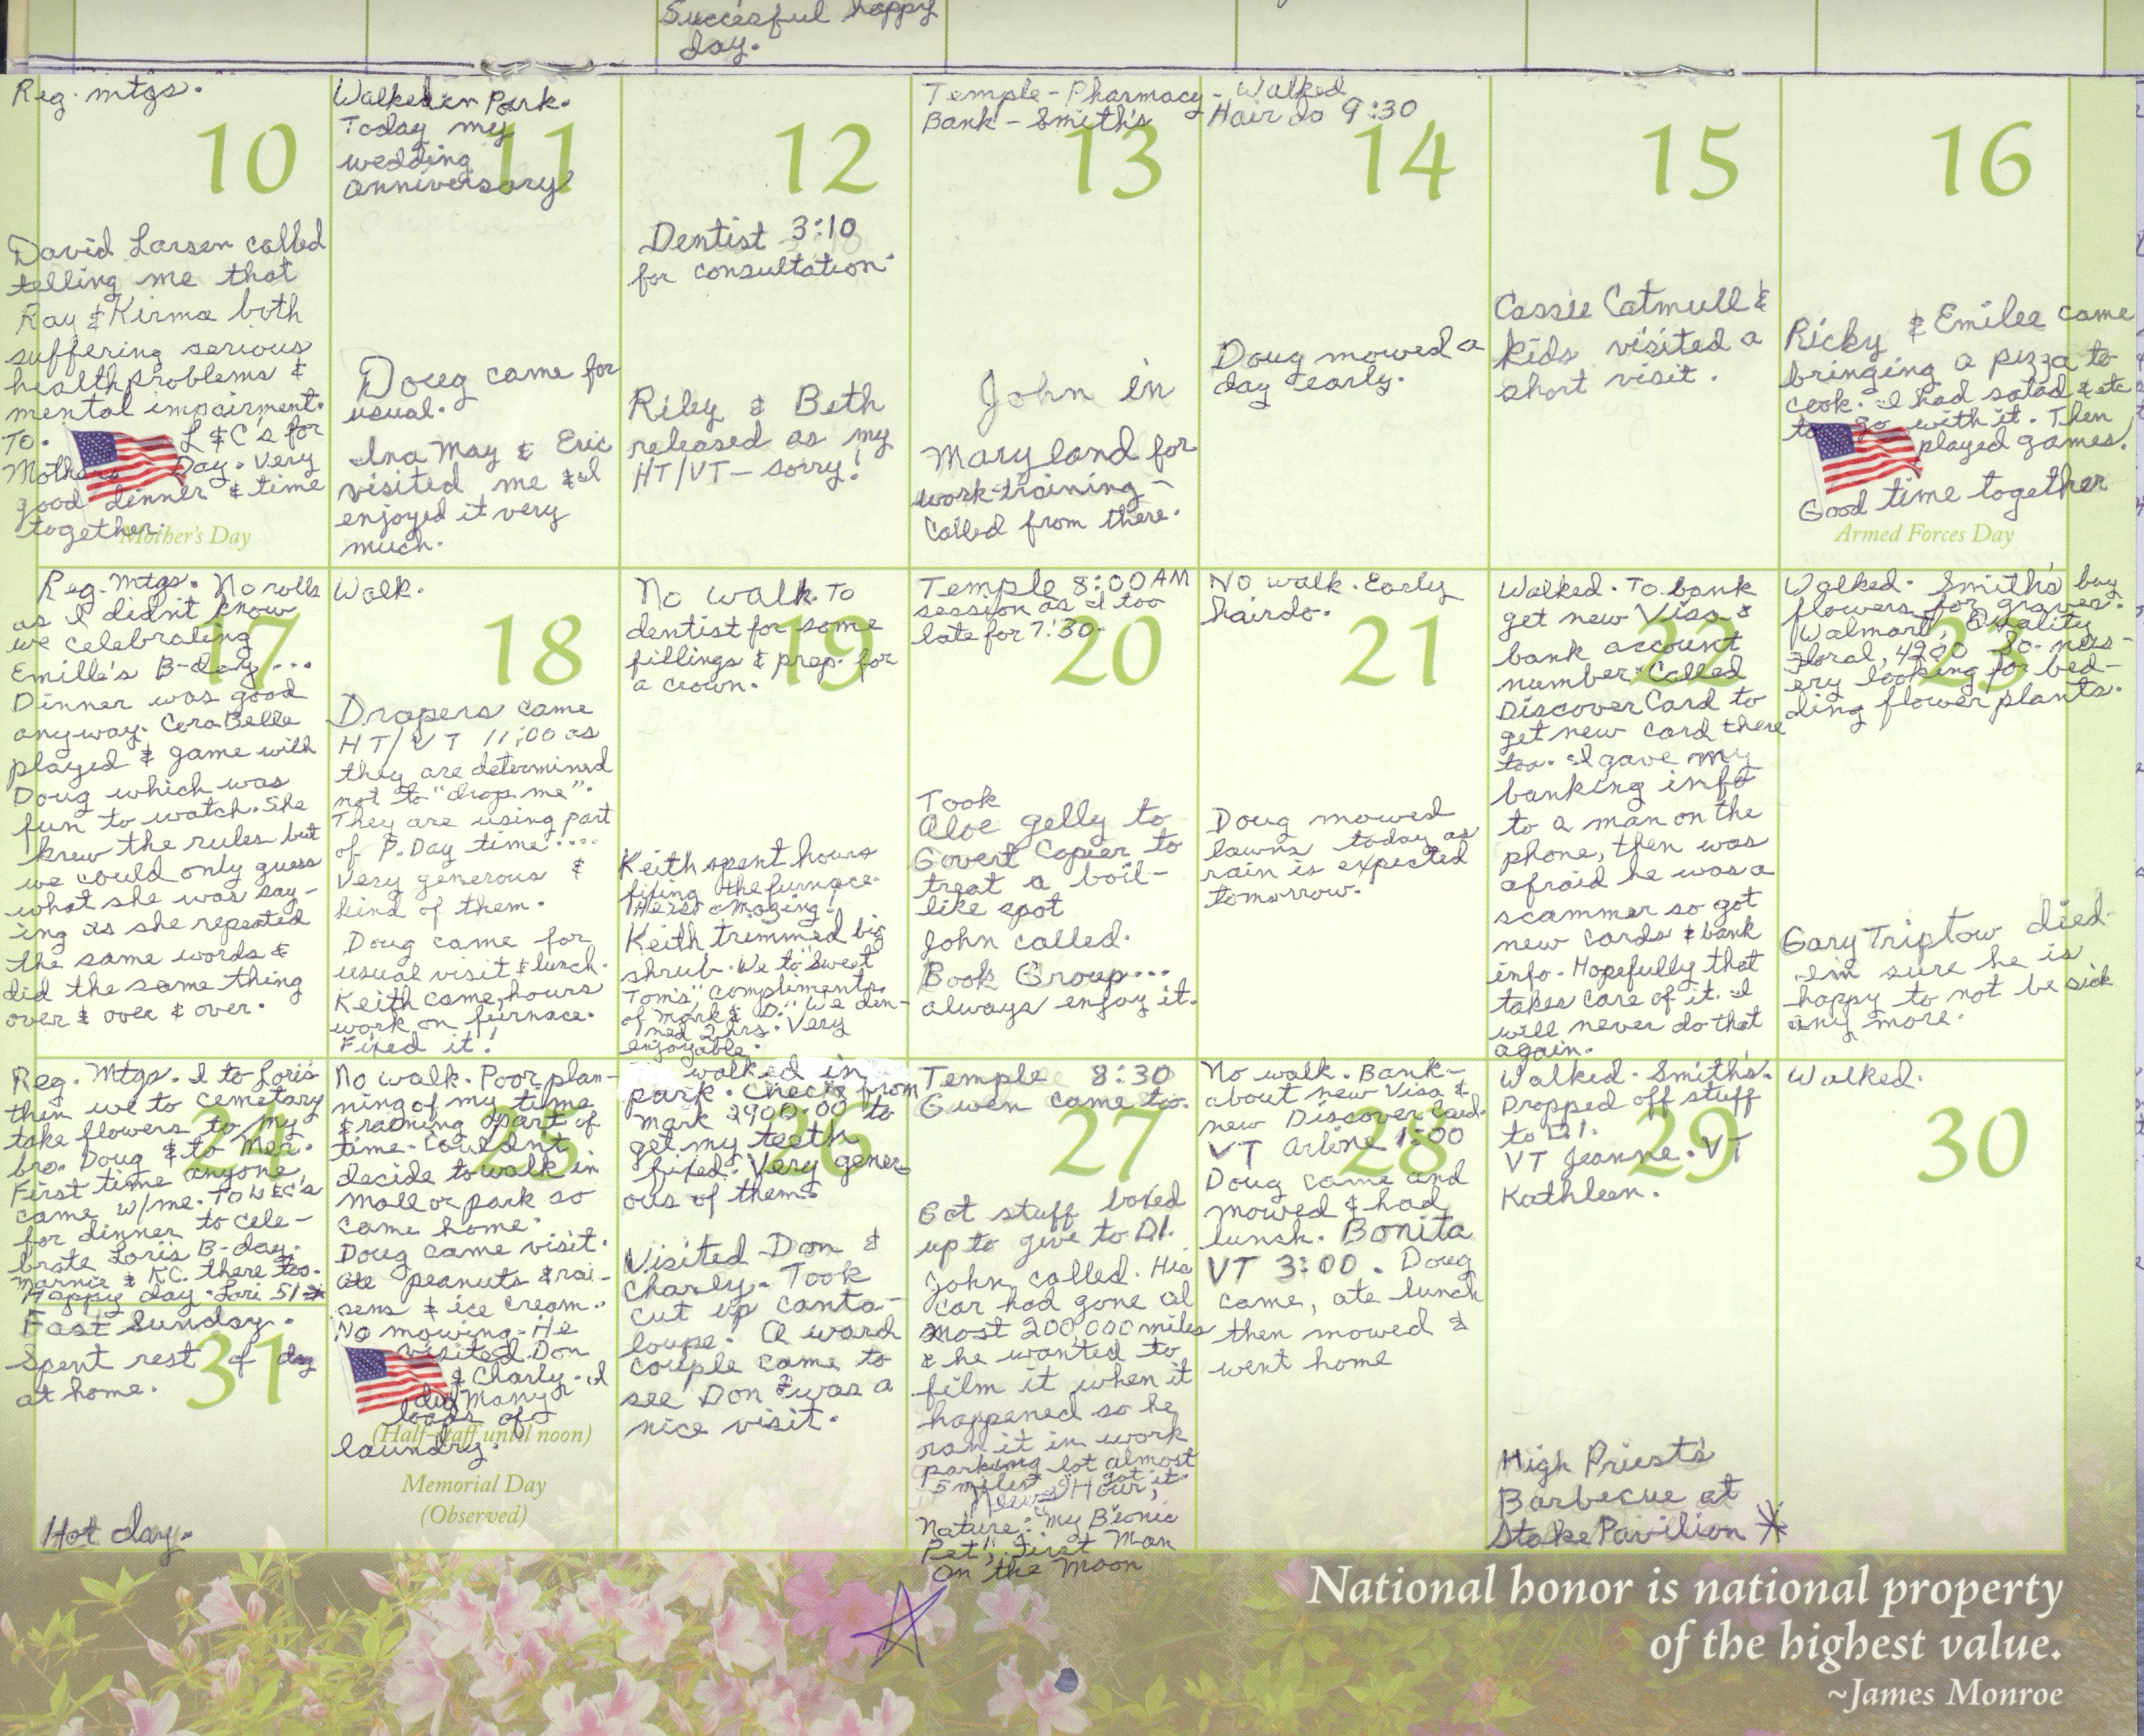 Succesful happy
day.
Reg. mtgs.
10
David Larsen called
telling me that
Ray & Kirma both
suffering serious
health problems &
mental impairment.
To L&C's for
Mothers Day. Very
good dinner & time
together.
Mother's Day
Walked in Park.
Today my
wedding
anniversary!
11
Doug came for
usual.
Ina May & Eric
visited me & I
enjoyed it very
much.
12
Dentist 3:10
for consultation.
Riley & Beth
released as my
HT/VT - sorry!
Temple - Pharmacy -
Bank - Smith's
13
John in
Maryland for
work-training -
Called from there.
Walked
Hair do 9:30
14
Doug mowed a
day early.
15
Cassie Catmull &
kids visited a
short visit.
16
Ricky & Emilee came
bringing a pizza to
cook. I had salad & etc
to go with it. Then
played games.
Good time together
Armed Forces Day
Reg. Mtgs. No rolls
as I didn't know
we celebrating
Emille's B-day...
17
Dinner was good
anyway. Cora Belle
played & game with
Doug which was
fun to watch. She
knew the rules but
we could only guess
what she was say-
ing as she repeated
the same words &
did the same thing
over & over & over.
Walk.
18
Drapers came
HT/VT 11:00 as
they are determined
not to "drop me".
They are using part
of P. Day time....
Very generous &
kind of them.
Doug came for
usual visit & lunch.
Keith came, hours
work on furnace.
Fixed it!
No walk. To
dentist for some
fillings & prep. for
a crown.
19
Keith spent hours
fixing the furnace.
He is amazing!
Keith trimmed big
shrub. We to Sweet
Tom's, complements
of Mark & D. We din-
ned 2 hrs. Very
enjoyable.
Temple 8:00 AM
session as I too
late for 7:30.
20
Took
Aloe gelly to
Govert Copier to
treat a boil-
like spot
John called.
Book Group...
always enjoy it.
No walk. Early
hairdo.
21
Doug mowed
lawns today as
rain is expected
tomorrow.
Walked. To bank
get new Visa &
bank account
number. Called
22
Discover Card to
get new card there
too. I gave my
banking info
to a man on the
phone, then was
afraid he was a
scammer so got
new cards & bank
info. Hopefully that
takes care of it. I
will never do that
again.
Walked. Smith's buy
flowers for graves.
Walmart, Quality
Floral, 4900 So. nurs-
ery looking for bed-
ding flower plants.
23
Gary Triptow died.
I'm sure he is
happy to not be sick
any more.
Reg. Mtgs. I to Lori's
then we to cemetary
take flowers to my
bro. Doug & to Mer.
24
First time anyone
came w/me. To L&C's
for dinner to cele-
brate Loris B-day.
Marnie & KC. there too.
Happy day. Lori 51
Fast Sunday.
Spent rest of day
at home.
31
Hot day.
No walk. Poor plan-
ning of my time
& raining part of
time. Couldn't
decide to walk in
25
mall or park so
came home.
Doug came visit.
ate peanuts & rai-
sens & ice cream.
No mowing. He
visited Don
& Charly. I
did many
loads of
laundry.
(Half-staff until noon)
Memorial Day
(Observed)
walked in
park. Check from
Mark 2900.00 to
get my teeth
fixed. Very gener-
ous of them.
26
Visited Don &
Charly. Took
cut up canta-
loupe. A ward
couple came to
see Don & was a
nice visit.
Temple 8:30
Gwen came too.
27
Got stuff boxed
up to give to DI.
John called. His
car had gone al
most 200,000 miles
& he wanted to
film it when it
happened so he
ran it in work
parking lot almost
5 miles & got it.
News Hour,
Nature: "My Bionic
Pet", First Man
On the Moon
No walk. Bank -
about new Visa &
new Discover Card.
VT Arline 1:00
28
Doug came and
mowed & had
lunch. Bonita
VT 3:00. Doug
came, ate lunch
then mowed &
went home
Walked. Smith's.
Dropped off stuff
to DI.
VT Jeanne. VT
Kathleen.
29
High Priests
Barbecue at
Stake Pavilion
Walked.
30
National honor is national property
of the highest value.
~James Monroe